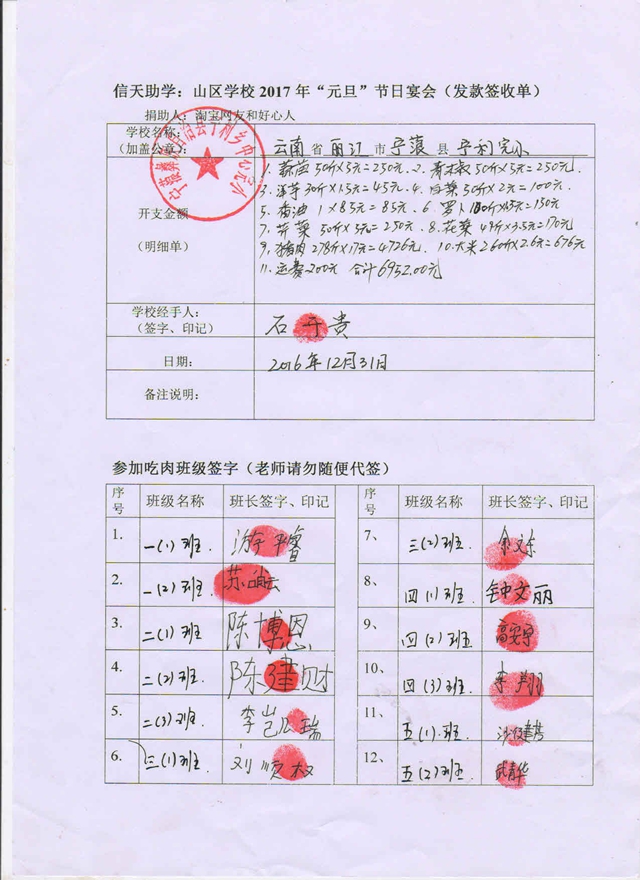 信天助学：山区学校2017年“元旦”节日宴会（发款签收单）
捐助人：淘宝网友和好心人
学校名称：
（加盖公章）
云南省 丽江市 宁蒗县 宁利完小
开支金额
（明细单）
1、蒜苗50斤x5元=250元、2、青椒50斤x5元=250元、
3、洋芋30斤x1.5元=45元、4、白菜50斤x2元=100元、
5、香油1x85元=85元、6、萝卜100斤x1.5元=150元
7、芹菜50斤x5元=250元、8、花菜49斤x3.5元=170元
9、猪肉278斤x17元=4726元、10、大米260斤x2.6元=676元
11、运费200元 合计6952.00元
学校经手人：
（签字、印记）
石开贵
日期：
2016年12月31日
备注说明：
参加吃肉班级签字（老师请勿随便代签）
序号 班级名称 班长签字、印记 序号 班级名称 班长签字、印记
1. 一(1)班
7、 三(2)班. 余文东
2. 一(2)班
8、 四(1)班. 钟文丽
3. 二(1)班 陈博恩
9、 四(2)班.
4. 二(2)班. 陈建财
10、 四(3)班. 李翔
5. 二(3)班. 李
11、 五(1)班.
6. 三(1)班. 刘顺权
12、 五(2)班 武青华